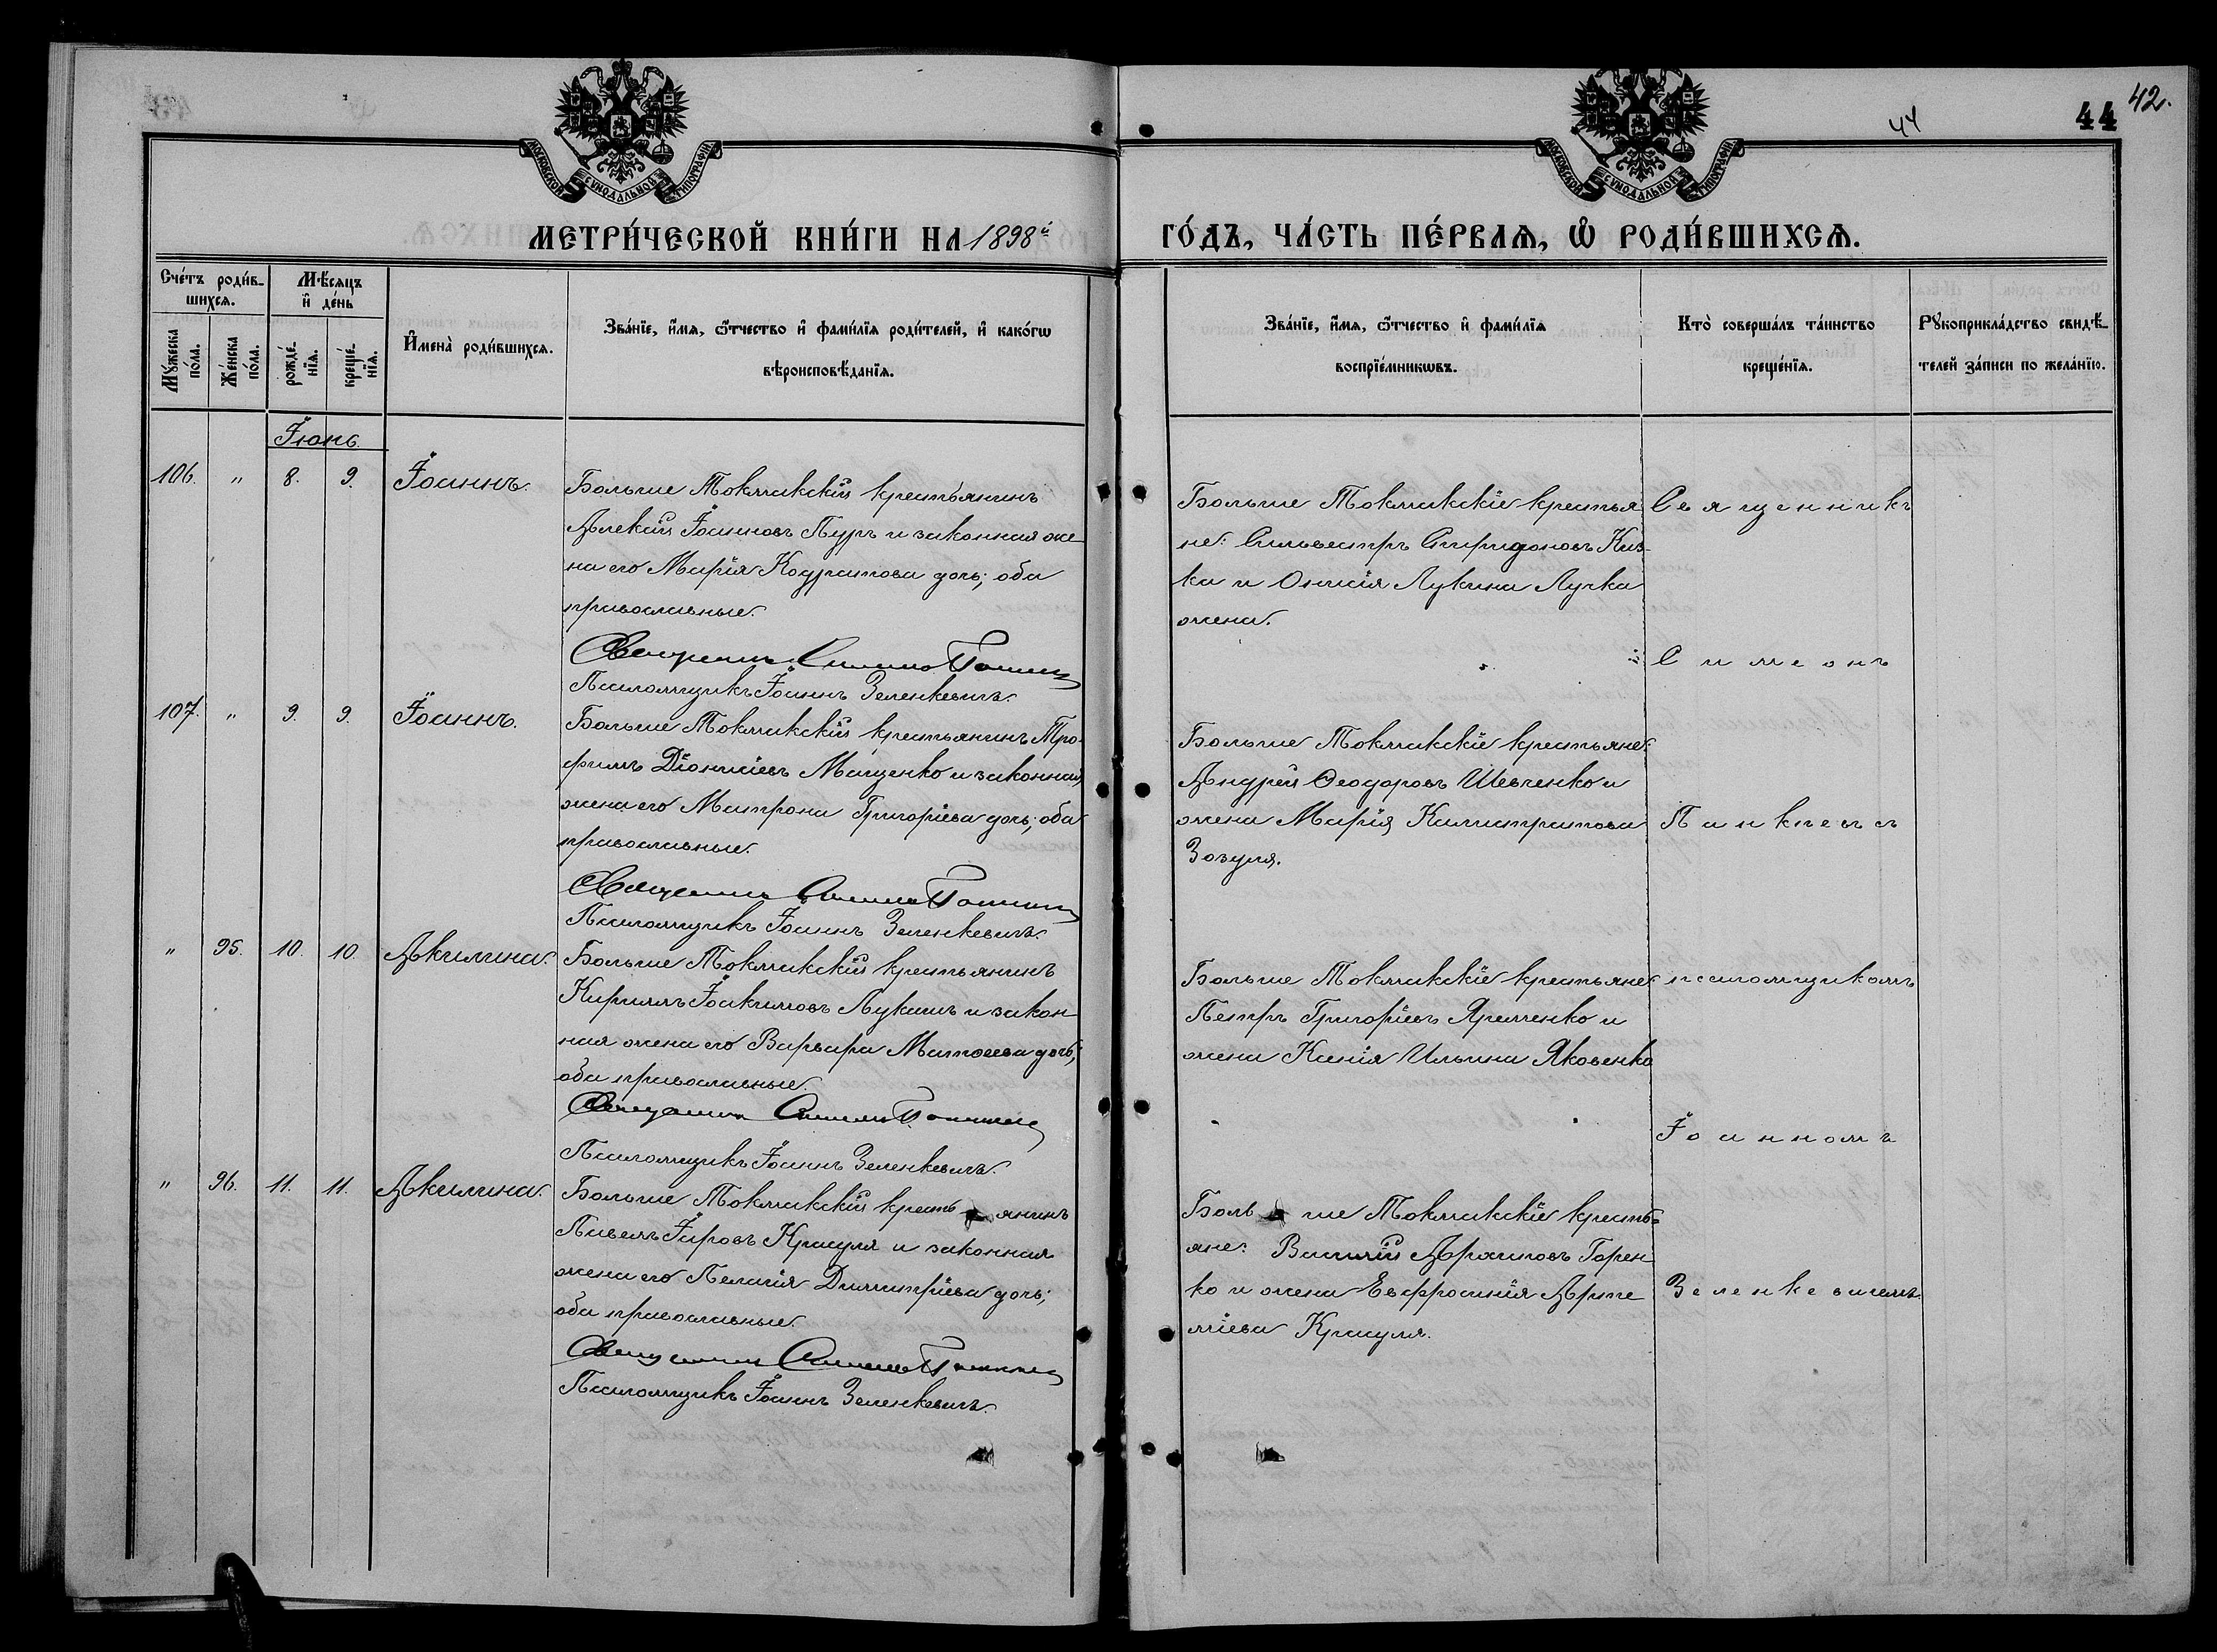 44
44
42.
МОСКОВСКОЙ СѴНОДАЛЬНОЙ ТИПОГРАФІИ
МОСКОВСКОЙ СѴНОДАЛЬНОЙ ТИПОГРАФІИ
МЕТРИ́ЧЕСКОЙ КНИ́ГИ НА 1898й
ГО́ДЪ, ЧА́СТЬ ПЕ́РВАѦ, Ѡ҆ РОДИ́ВШИХСѦ.
Сче́тъ роди́в-
шихсѧ.
Мꙋ́жеска
по́ла.
Же́нска
по́ла.
Мѣ́сѧцъ
и҆ де́нь
рожде́-
нїѧ.
креще́-
нїѧ.
И҆мена̀ роди́вшихсѧ.
Зва́нїе, и҆́мѧ, ѻ҆́тчество и҆ фами́лїѧ роди́телей, и҆ како́гѡ
вѣроисповѣ́данїѧ.
Зва́нїе, и҆́мѧ, ѻ҆́тчество и҆ фами́лїѧ
воспрїе́мникѡвъ.
Кто̀ соверша́лъ та́инство
креще́нїѧ.
Рꙋкоприкла́дство свидѣ́-
телей за́писи по жела́нїю.
Іюнь.
106. " 8. 9. Іоаннъ.
Больше Токмакскій крестьянинъ
Алексій Іоанновъ Пуръ и законная же
на его Марія Кодратова дочь; оба
православные.
Священникъ Симеонъ
Псаломщикъ Іоаннъ Зеленкевичъ.
Больше Токмакскіе крестья
не: Сильвестръ Спиридоновъ
ка и Онисія Лукина Лучка
жена.
107. " 9. 9. Іоаннъ.
Больше Токмакскій крестьянинъ Тро-
фимъ Діонисіевъ Мащенко и законная
жена его Матрона Григоріева дочь; оба
православные.
Священникъ Симеонъ
Псаломщикъ Іоаннъ Зеленкевичъ.
Больше Токмакскіе крестьяне:
Андрей Ѳеодоровъ Шевченко и
жена Марія Калистратова
Зозуля.
" 95. 10. 10. Акилина.
Больше Токмакскій крестьянинъ
Кириллъ Іоакимовъ Лукашъ и закон
ная жена его Варвара Матѳеева дочь;
оба православные.
Священникъ Симеонъ
Псаломщикъ Іоаннъ Зеленкевичъ.
Больше Токмакскіе крестьяне:
Петръ Григоріевъ Яременко и
жена Ксенія Ильина Яковенко
" 96. 11. 11. Акилина.
Больше Токмакскій кресть янинъ
Павелъ Іаровъ Красуля и законная
жена его Пелагія Димитріева дочь;
оба православные.
Священникъ Симеонъ
Псаломщикъ Іоаннъ Зеленкевичъ.
Боль ше Токмакскіе кресть-
яне: Василій Горен
ко и жена Евфросинія Арте
міева Красуля.
Священникъ
Симеонъ
псаломщикомъ
Іоанномъ
Зеленкевичемъ.